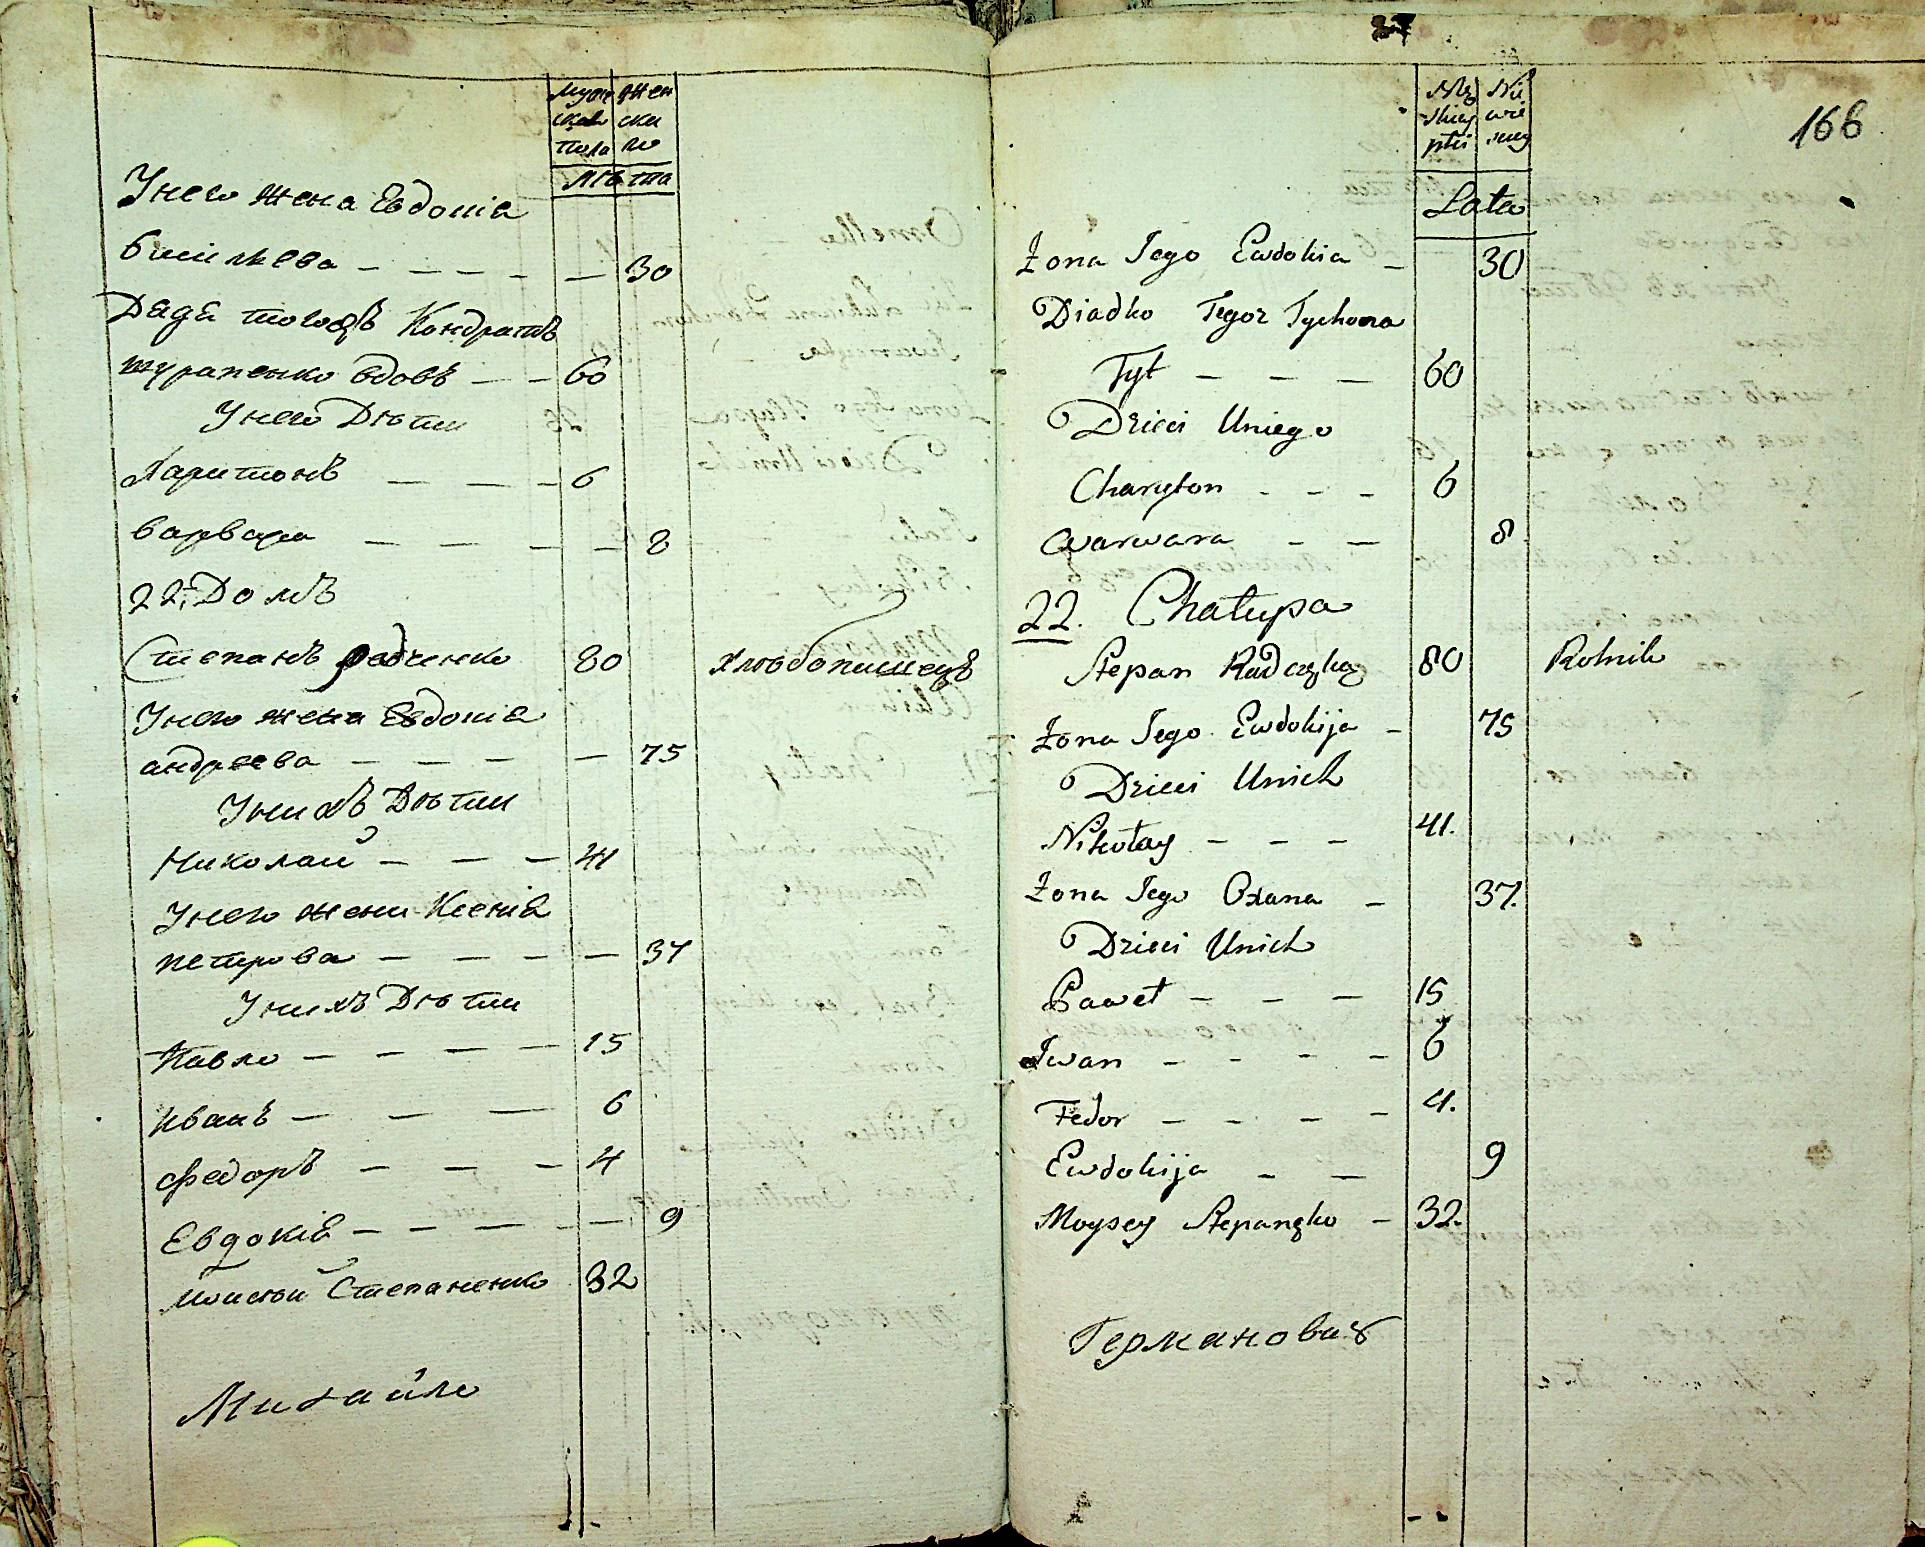 Мужеска пола
Женско го
Лѣта
У него жена Евдокіа
30
Дядя
Кондратъ
вдовъ — — 60
У него Дѣти
Харитонъ — — — 6
Варвара — — — — 8
22, Домъ
Степанъ Радченко 80 хлѣбопашецъ
У него жена Евдокіа
андреева — — — — 75
У нихъ Дѣти
Николай — — — 41
У него жена Ксеніа
петрова — — — — 37
У нихъ Дѣти
Павло — — — — 15
Иванъ — — — 6
Федоръ — — — 4
Евдокіа — — — — — 9
Мойсей Степаненко 32
Михайло
166
Męzkiey płci
Niewiesciey
Lata
Żona Jego Ewdokia — 30
Diadko Tegoz Tychona
Tyt — — — 60
Dzieci Uniego
Charyton - - - 6
Warwara — — 8
22. Chatupa
Stepan Radczenko 80 Rolnik
Żona Jego Ewdokija — 75
Dzieci Unich
Nikołay — — — 41.
Żona Jego Oxana — 37.
Dzieci Unich
Paweł — — — 15
Iwan — — — — 6
Fedor — — — — 4.
Ewdokija — — 9
Moysey Stepanenko — 32.
Германович